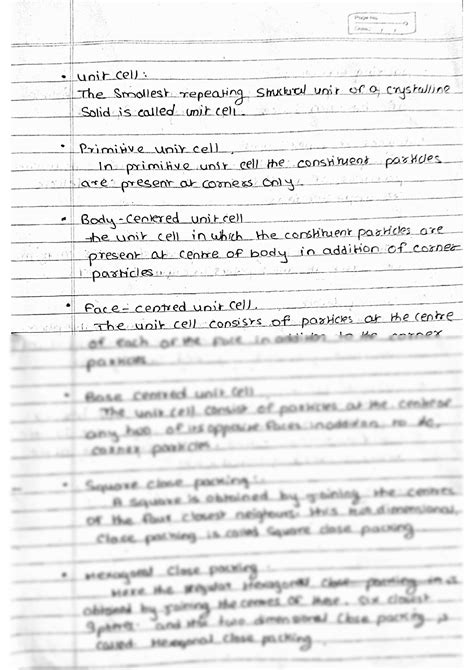 Page No.
Date:
• Unit cell :
The Smallest repeating Structural unit of a crystalline
Solid is called unit cell.
• Primitive unit cell.
In primitive unit cell the constituent particles
are present at corners only.
• Body-centered unit cell
the unit cell in which the constituent particles are
present at centre of body in addition of corner
particles
• Face-centred unit cell.
The unit cell consists of particles at the centre
of each of the face in addition to the corner
particles.
• Base centred unit cell
The unit cell consist of particles at the
any two of its opposite faces in addition to
corner particles.
• Square close packing :
A Square is obtained by joining the centres
of the four closest neighbours this two dimensional
close packing is called Square close packing
• Hexagonal Close packing :
Here the regular Hexagonal close packing is
obtained by joining the centres of these six closest
and this two dimensional Close packing is
called Hexagonal close packing